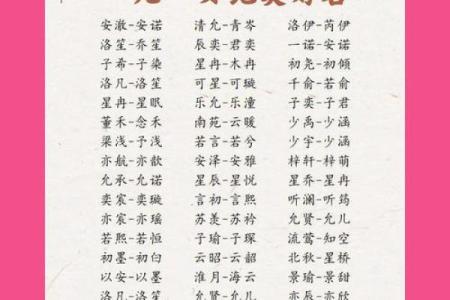 安澈-安诺 清允-青岑 洛伊-芮伊
洛笙-乔笙 辰奕-君奕 一诺-安诺
子希-子染 星冉-木冉 初尧-初倾
洛凡-洛笙 可星-可璇 千俞-若俞
星冉-星眠 乐允-乐潼 子奕-子君
董禾-念禾 南苑-云暖 少禹-少涵
梁浅-子浅 若言-若兮 少宇-少涵
亦航-亦歆 安泽-安雅 梓轩-梓萌
允承-允诺 星辰-星悦 星乔-星冉
奕宸-奕璇 言初-言熙 听澜-听筠
亦宸-亦瑶 苏羡-苏衿 允贤-允儿
若熙-若恒 子瑜-子琛 流莺-知空
初墨-初白 云昭-云韶 北秋-星桥
以安-以墨 淮月-海云 景瑜-景甜
洛凡-洛笙 允贤-允儿 亦辰-亦欣